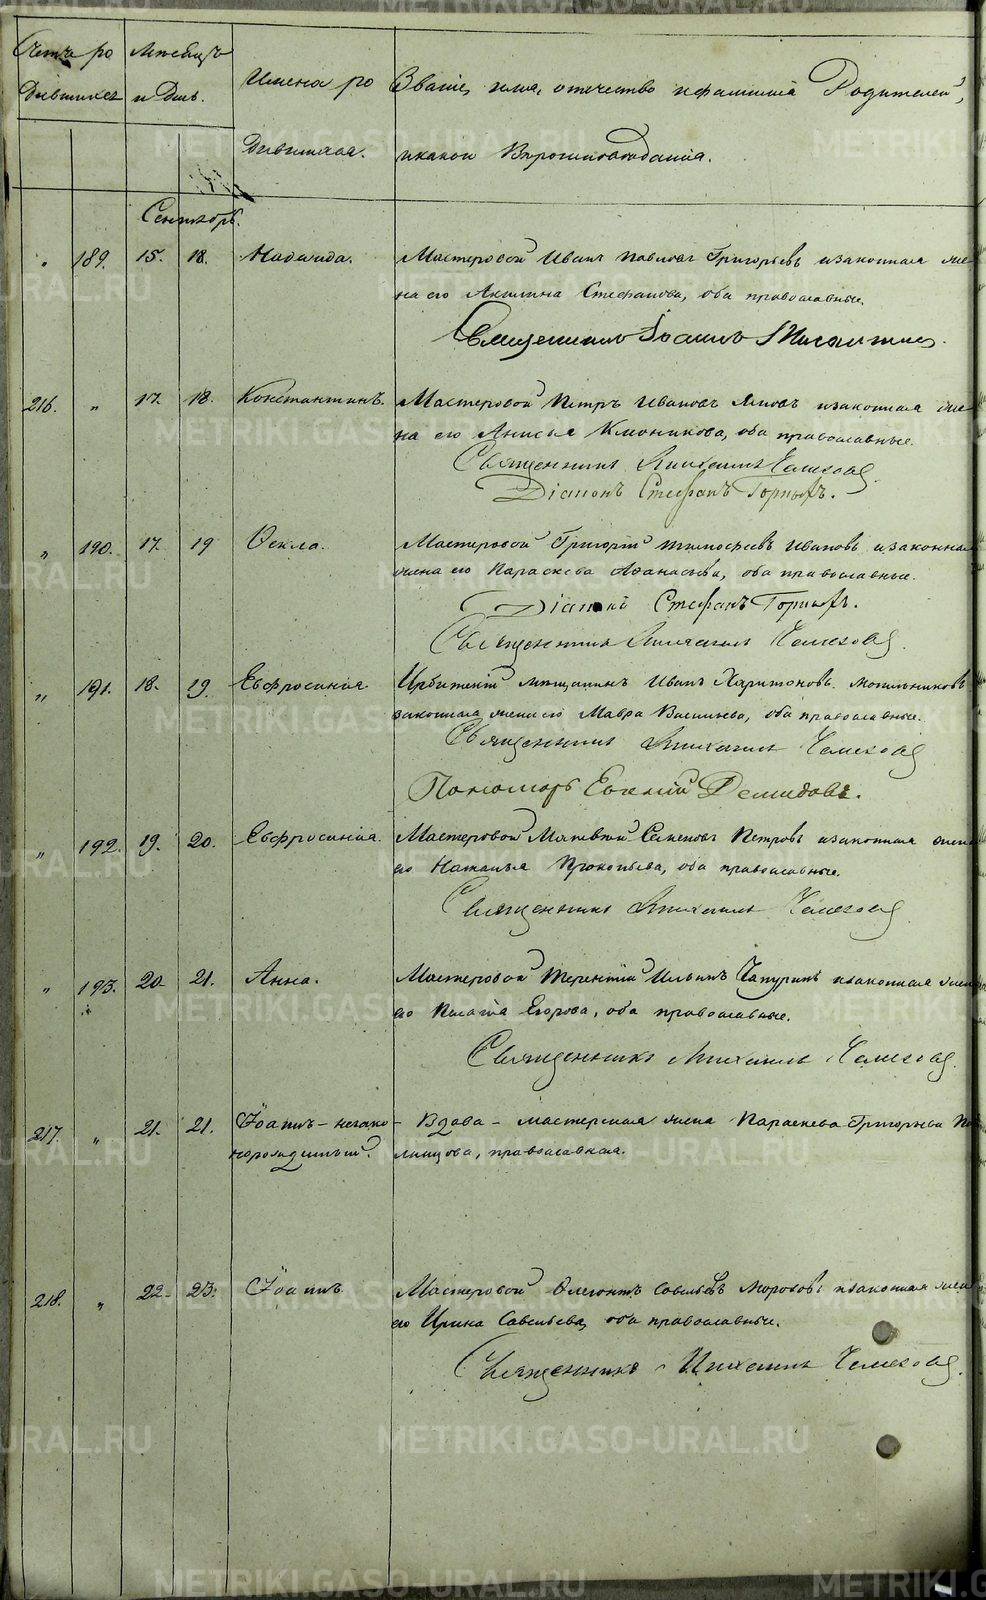 Счетъ ро
дившихся
Мѣсяцъ
и день.
Имена ро
дившихся.
Званіе, имя, отечество и фамилія Родителей,
и какого Вѣроисповѣданія.
Сентябрь.
„ 189. 15. 18. Надежда. Мастеровой Иванъ Павловъ Григорьевъ и законная же-
на его Акилина Стефанова, оба православные.
Священникъ Іоаннъ
216. „ 17. 18. Константинъ. Мастеровой Петръ Ивановъ и законная же-
на его Анисья оба православные.
Священникъ Михаилъ
Діаконъ Стефанъ Горныхъ.
„ 190. 17. 19 Ѳекла. Мастеровой Григорій Тимофеевъ Ивановъ и законная
жена его Параскева Афанасьева, оба православные.
Діаконъ Стефанъ Горныхъ.
Священникъ Михаилъ
„ 191. 18. 19. Евфросинія Ирбитскій мѣщанинъ Иванъ Харитоновъ Могильниковъ
законная жена его Мавра Васильева, оба православные.
Священникъ Михаилъ
Пономарь Евгеній Демидовъ.
„ 192. 19. 20. Евфросинія. Мастеровой Матвѣй Семеновъ Петровъ и законная жена
его Наталья Прокопьева, оба православные.
Священникъ Михаилъ
„ 193. 20. 21. Анна. Мастеровой Терентій Ильинъ Чапуринъ и законная жена
его Пелагія Егорова, оба православные.
Священникъ Михаилъ
217. „ 21. 21. Іоаннъ – незако- Вдова – мастерская жена Параскева Григорьева
норожденный. православная.
218. „ 22. 23. Іоаннъ Мастеровой Савельевъ Морозовъ и законная жена
его Ирина Савельева, оба православные.
Священникъ Михаилъ
METRIKI.GASO-URAL.RU